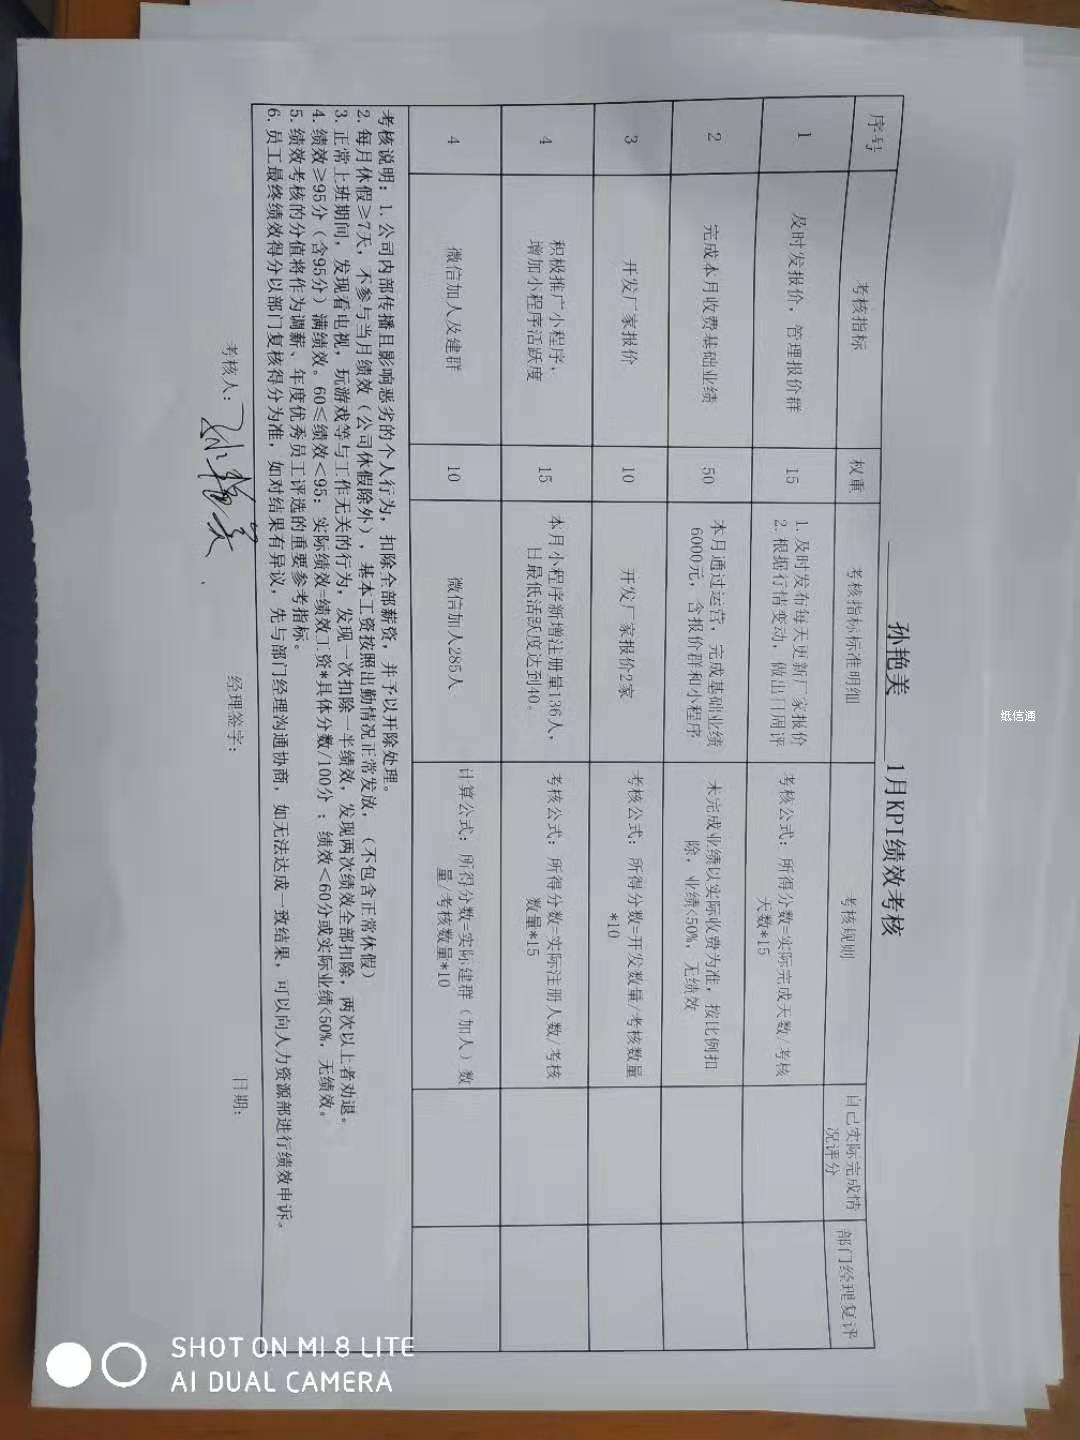 孙艳美 1月KPI绩效考核
序号 考核指标 权重 考核指标标准明细 考核规则 自己实际完成情
况评分 部门经理复评
1 及时发报价，管理报价群 15 1.及时发布每天更新厂家报价
2.根据行情变动，做出日周评 考核公式：所得分数=实际完成天数/考核
天数*15
2 完成本月收费基础业绩 50 本月通过运营，完成基础业绩
6000元，含报价群和小程序 未完成业绩以实际收费为准，按比例扣
除，业绩<50%，无绩效
3 开发厂家报价 10 开发厂家报价2家 考核公式：所得分数=开发数量/考核数量
*10
4 积极推广小程序、
增加小程序活跃度 15 本月小程序新增注册量136人，
日最低活跃度达到40。 考核公式：所得分数=实际注册人数/考核
数量*15
4 微信加人及建群 10 微信加人285人 计算公式：所得分数=实际建群（加人）数
量/考核数量*10
考核说明：1.公司内部传播且影响恶劣的个人行为，扣除全部薪资，并予以开除处理。
2.每月休假≥7天，不参与当月绩效（公司休假除外），基本工资按照出勤情况正常发放，（不包含正常休假）
3.正常上班期间，发现看电视，玩游戏等与工作无关的行为，发现一次扣除一半绩效，发现两次绩效全部扣除，两次以上者劝退。
4.绩效≥95分（含95分）满绩效。60≤绩效<95：实际绩效=绩效工资*具体分数/100分 ；绩效<60分或实际业绩<50%，无绩效。
5.绩效考核的分值将作为调薪、年度优秀员工评选的重要参考指标。
6.员工最终绩效得分以部门复核得分为准，如对结果有异议，先与部门经理沟通协商，如无法达成一致结果，可以向人力资源部进行绩效申诉。
考核人：孙艳美 经理签字： 日期：
纸信通
SHOT ON MI 8 LITE
AI DUAL CAMERA